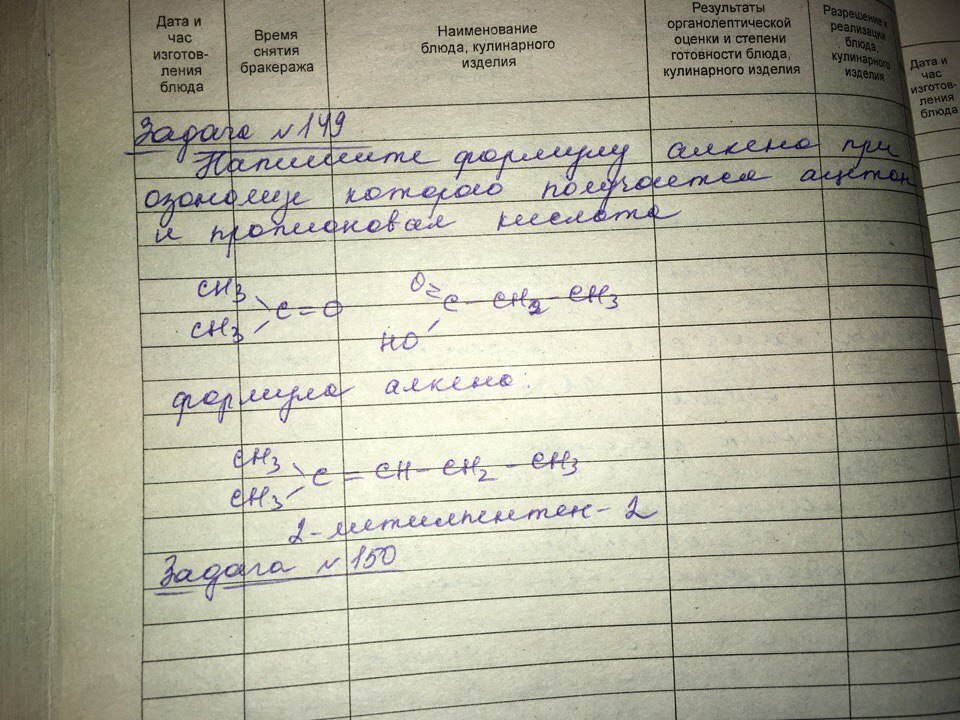 Дата и
час
изготов-
ления
блюда
Время
снятия
бракеража
Наименование
блюда, кулинарного
изделия
Результаты
органолептической
оценки и степени
готовности блюда,
кулинарного изделия
Разрешение к
реализации
блюда,
кулинарного
изделия
Дата и
час
изготов-
ления
блюда
Задача №149
Напишите формулу алкена при
озонолизе которого получается ацетон
и пропионовая кислота
CH3
CH3
C=O
O=
C-CH2-CH3
HO
формула алкена:
CH3
CH3
C=CH-CH2-CH3
2-метилпентен-2
Задача №150